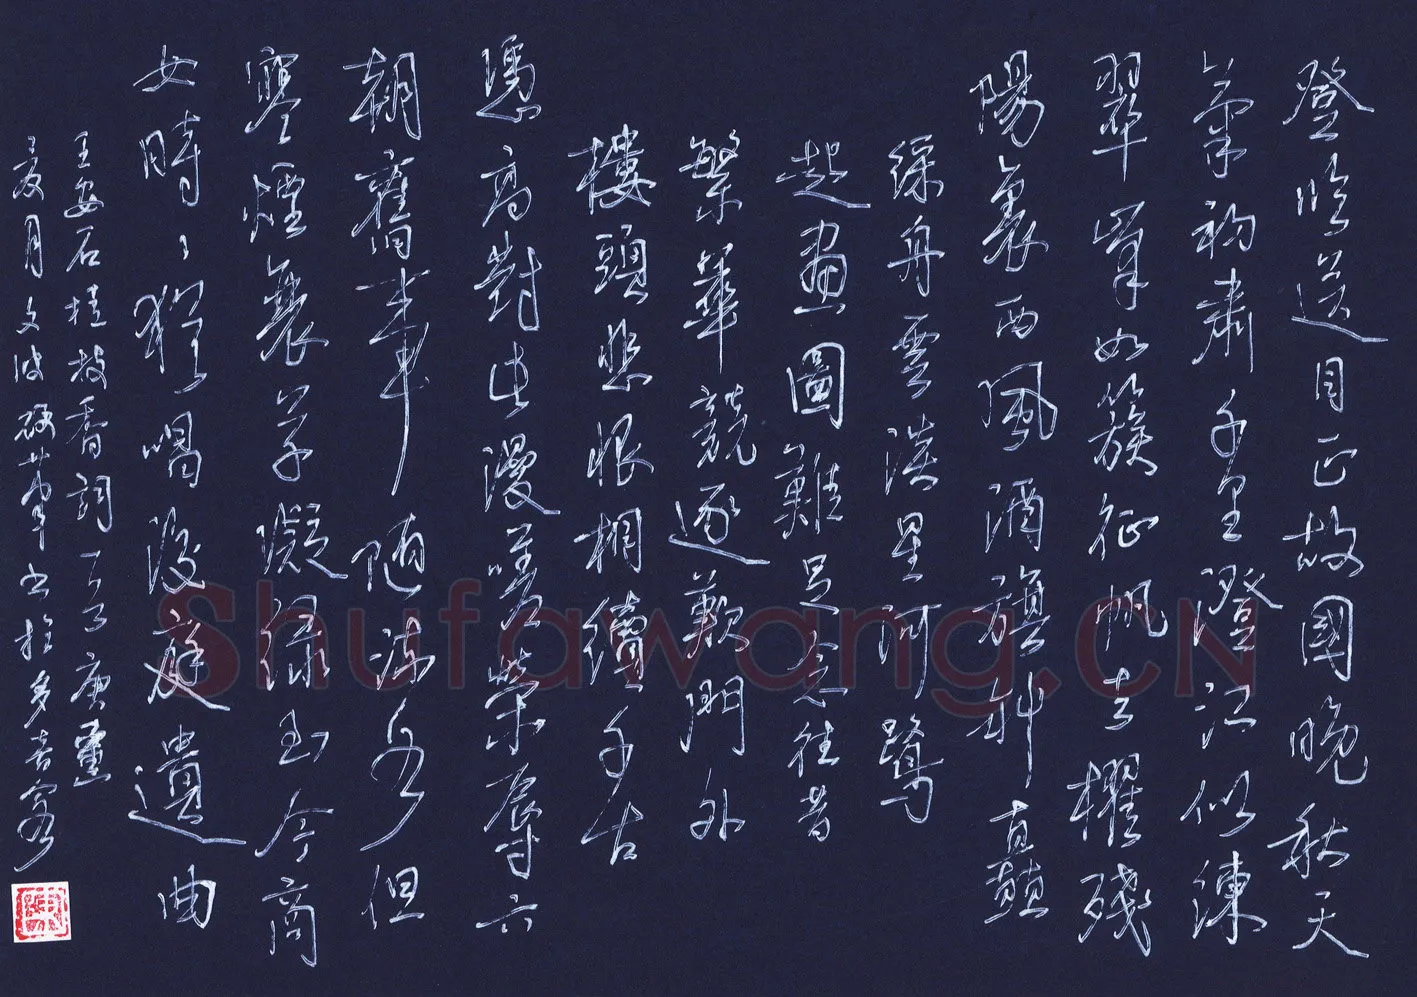 登臨送目正故國晚秋天
氣初肅千里澄江似練
翠峯如簇征帆去棹殘
陽裏西風酒旗斜矗
綵舟雲淡星河鷺
起畫圖難足念往昔
繁華競逐歎門外
樓頭悲恨相續千古
憑高對此漫嗟榮辱六
朝舊事隨流水但
寒煙衰草凝綠至今商
女時時猶唱後庭遺曲
王安石桂枝香詞 庚寅
夏月文波硬筆書於多吉齋
Shufawang.CN